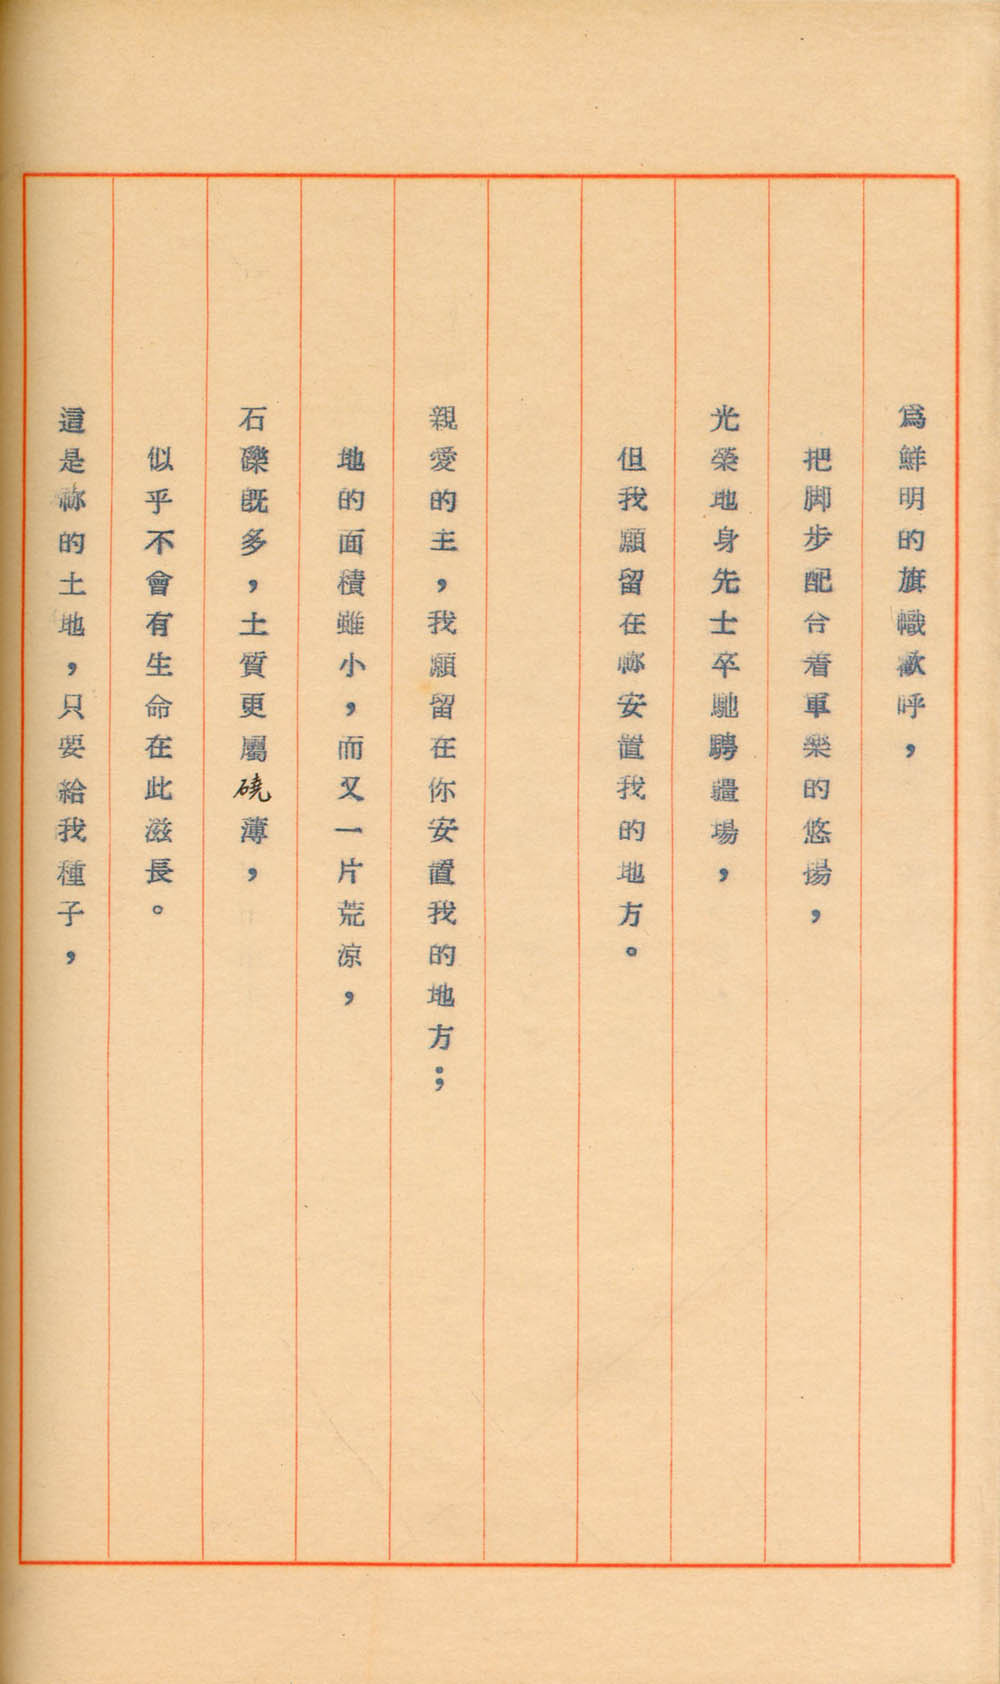 爲鮮明的旗幟歡呼，
把脚步配合着軍樂的悠揚，
光榮地身先士卒馳騁疆場，
但我願留在祢安置我的地方。
親愛的主，我願留在你安置我的地方；
地的面積雖小，而又一片荒涼，
石礫既多，土質更屬磽薄，
似乎不會有生命在此滋長。
這是祢的土地，只要給我種子，